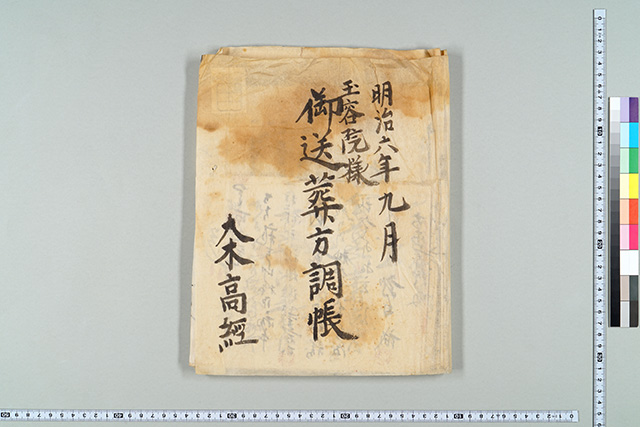 明治六年九月
玉容院様
御送葬方調帳
大木高經